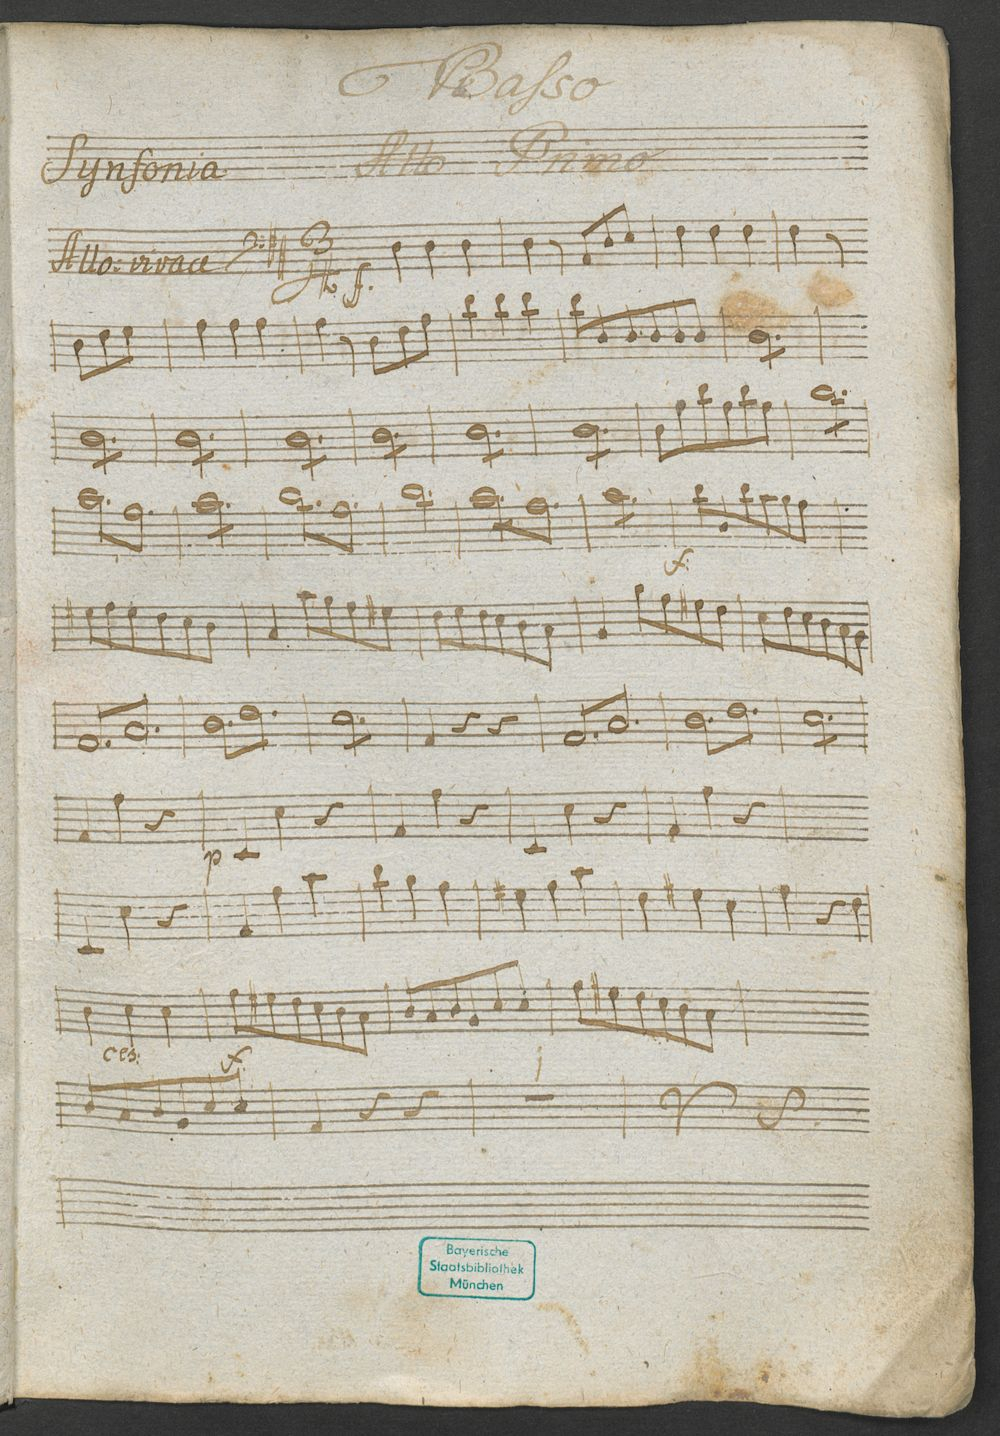 Basso
Synfonia Atto Primo
Allo: vivace 3/4 f.
f.
p
ces: f
1
V S
Bayerische
Staatsbibliothek
München